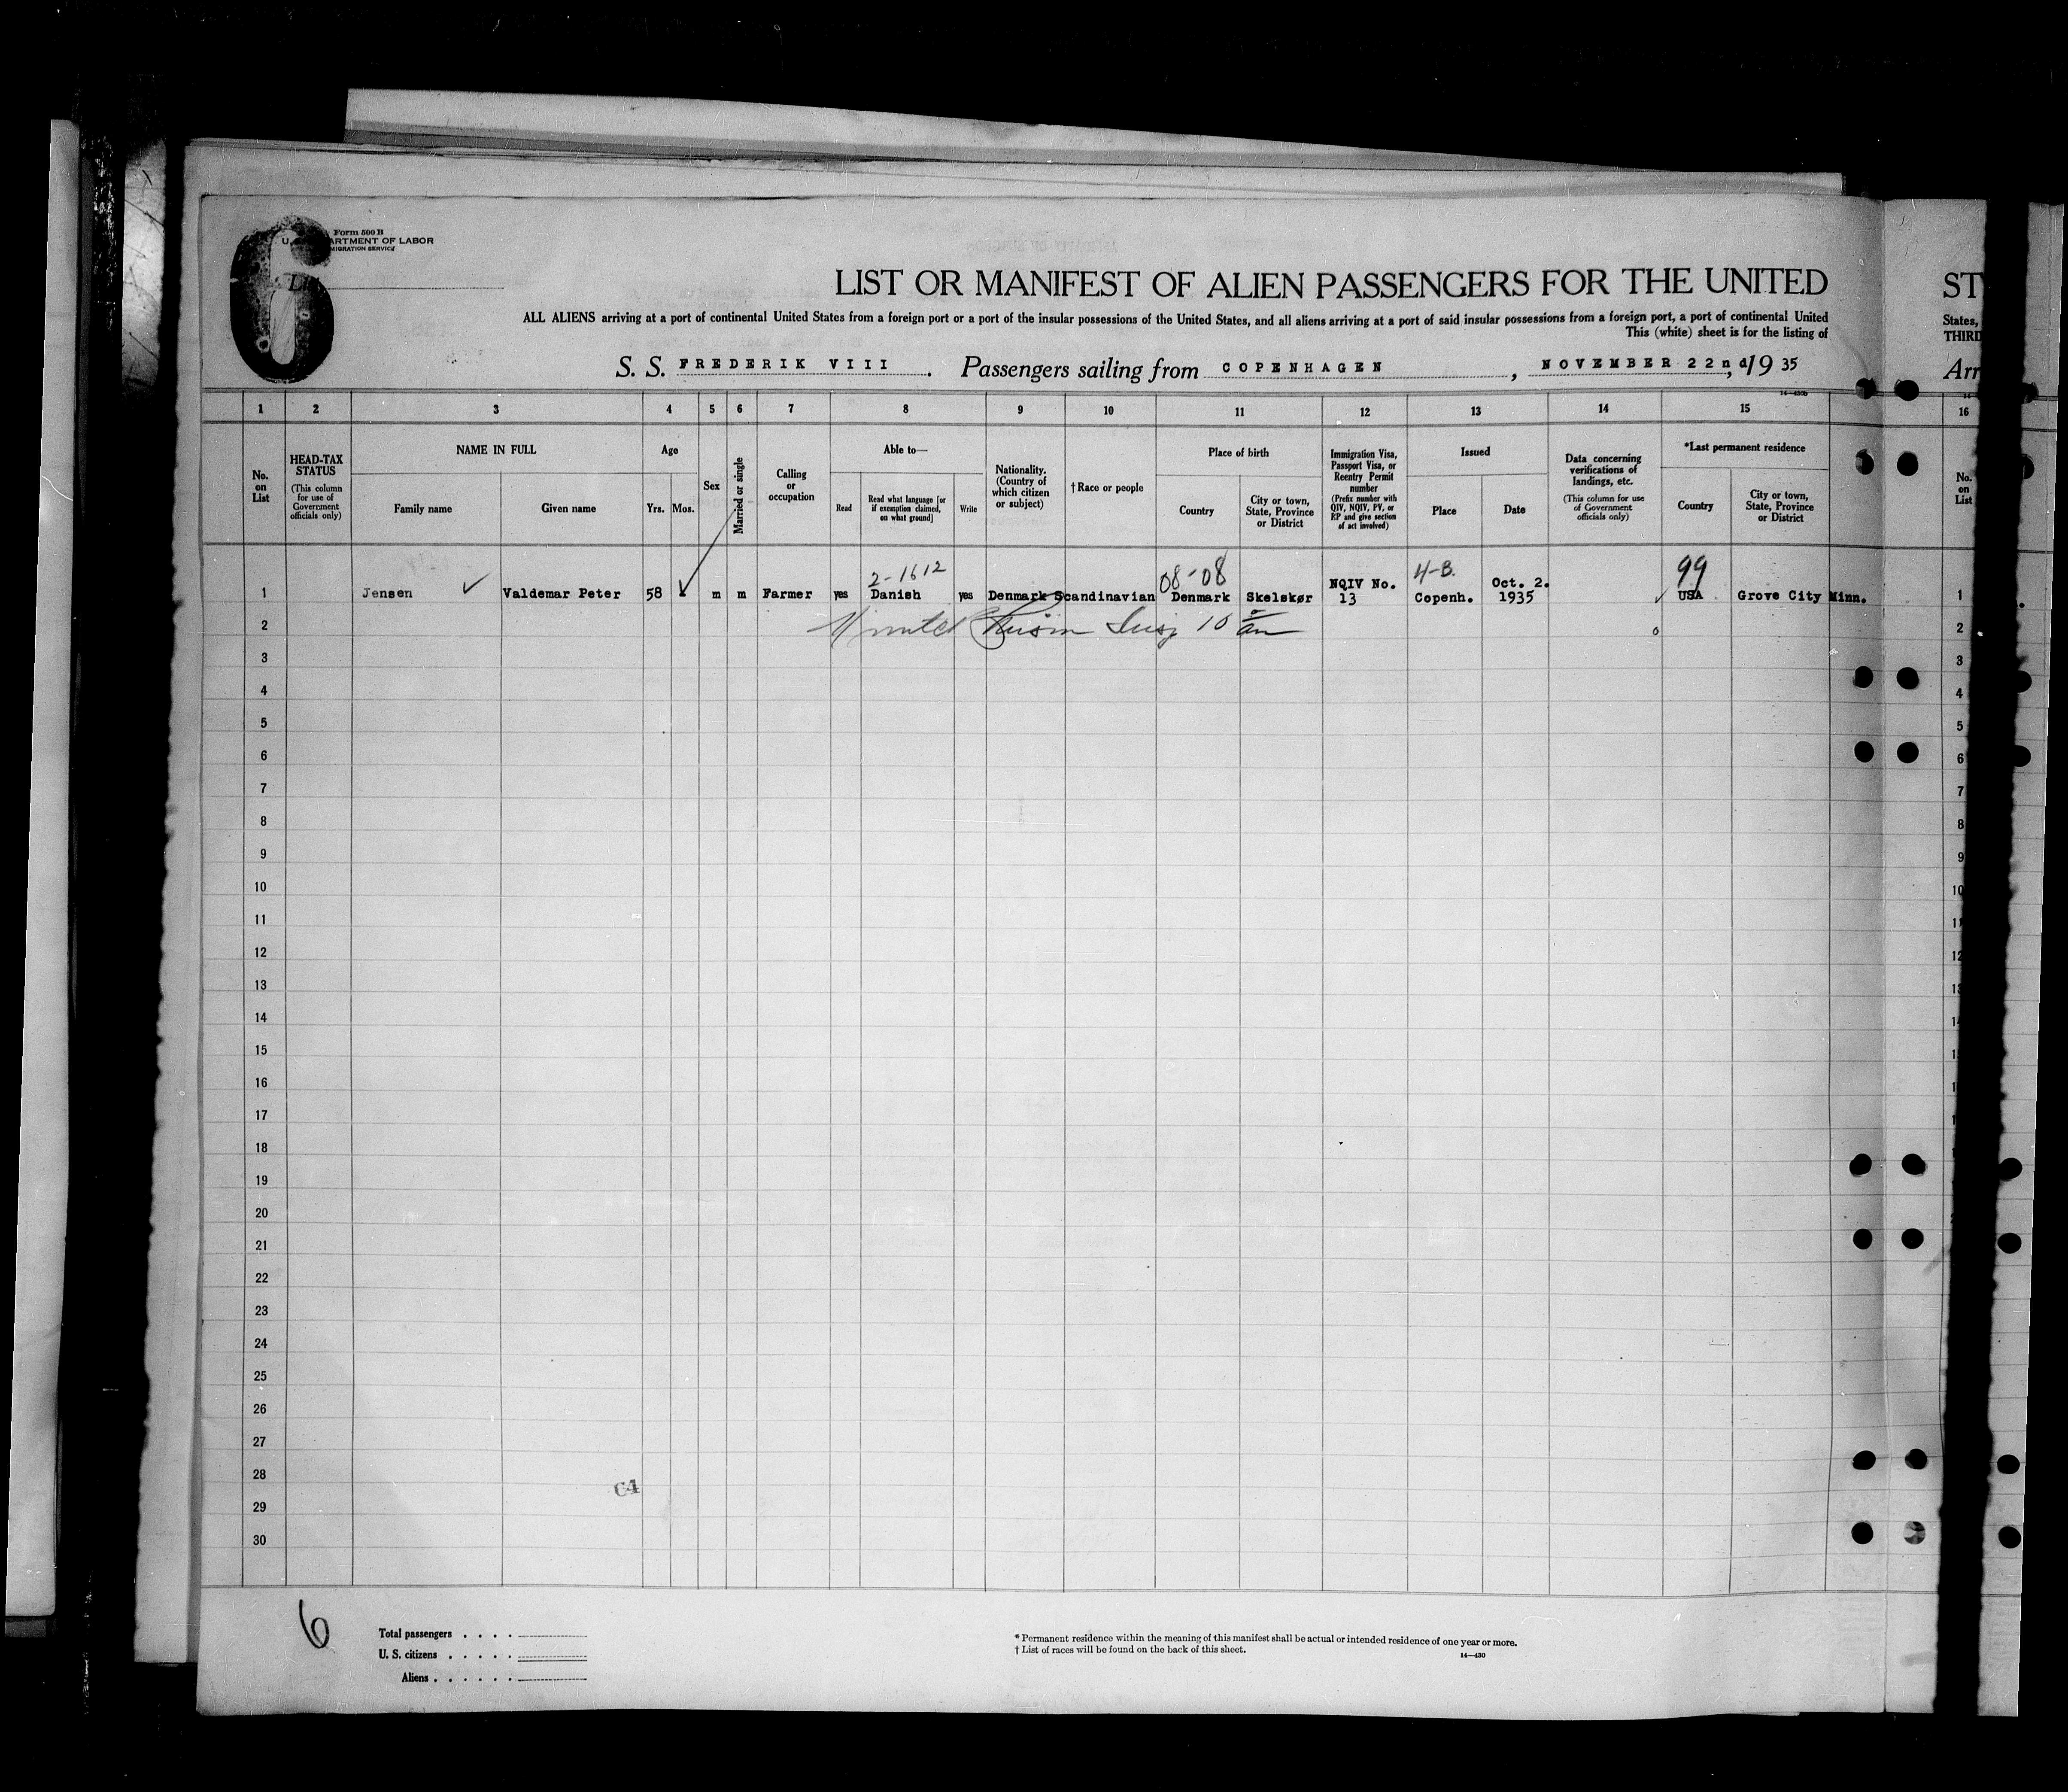 6
Form 500 B
U. S. DEPARTMENT OF LABOR
IMMIGRATION SERVICE
LIST OR MANIFEST OF ALIEN PASSENGERS FOR THE UNITED
ST
ALL ALIENS arriving at a port of continental United States from a foreign port or a port of the insular possessions of the United States, and all aliens arriving at a port of said insular possessions from a foreign port, a port of continental United
States,
This (white) sheet is for the listing of
THIRD
S. S. FREDERIK VIII. Passengers sailing from COPENHAGEN, NOVEMBER 22nd, 1935
Arr
14—430b
1 2 3 4 5 6 7 8 9 10 11 12 13 14 15 16
No. on List
HEAD-TAX STATUS
(This column for use of Government officials only)
NAME IN FULL
Family name
Given name
Age
Yrs. Mos.
Sex
Married or single
Calling or occupation
Able to—
Read
Read what language [or if exemption claimed, on what ground]
Write
Nationality. (Country of which citizen or subject)
†Race or people
Place of birth
Country
City or town, State, Province or District
Immigration Visa, Passport Visa, or Reentry Permit number
(Prefix number with QIV, NQIV, PV, or RP and give section of act involved)
Issued
Place
Date
Data concerning verifications of landings, etc.
(This column for use of Government officials only)
*Last permanent residence
Country
City or town, State, Province or District
No. on List
2-1612 08-08 4-B. 99
1 Jensen ✓ Valdemar Peter 58 m m Farmer yes Danish yes Denmark Scandinavian Denmark Skelskør NQIV No. 13 Copenh. Oct. 2. 1935 ✓ USA Grove City Minn. 1
2 10 2
3 3
4 4
5 5
6 6
7 7
8 8
9 9
10 10
11 11
12 12
13 13
14 14
15
16
17
18
19
20
21
22
23
24
25
26
27
28
29
30
C4
6
Total passengers . . . .
U. S. citizens . . . . .
Aliens . . . . . .
* Permanent residence within the meaning of this manifest shall be actual or intended residence of one year or more.
† List of races will be found on the back of this sheet.
14—430